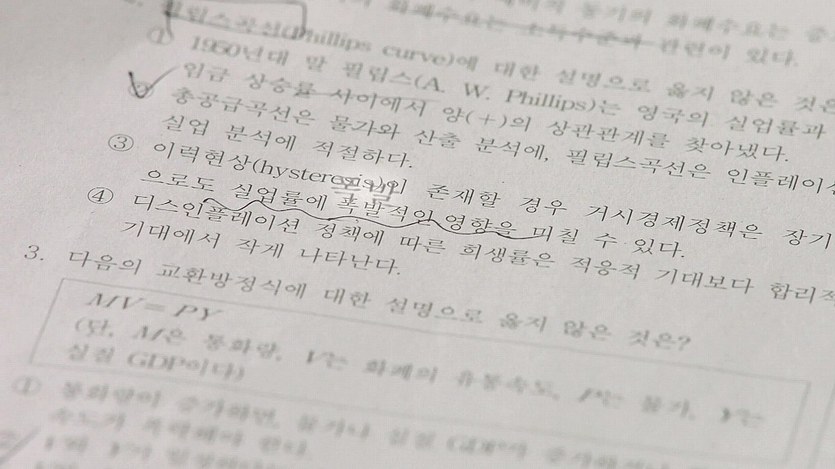 화폐수요는 소득수준과 관련이 있다.
필립스곡선(Phillips curve)에 대한 설명으로 옳지 않은 것은
① 1950년대 말 필립스(A. W. Phillips)는 영국의 실업률과
임금 상승률 사이에서 양(+)의 상관관계를 찾아냈다.
② 총공급곡선은 물가와 산출 분석에, 필립스곡선은 인플레이션
실업 분석에 적절하다.
③ 이력현상(hysteresis)이 존재할 경우 거시경제정책은 장기
으로도 실업률에 폭발적인 영향을 미칠 수 있다.
④ 디스인플레이션 정책에 따른 희생률은 적응적 기대보다 합리적
기대에서 작게 나타난다.
3. 다음의 교환방정식에 대한 설명으로 옳지 않은 것은?
MV = PY
(단, M은 통화량, V는 화폐의 유통속도, P는 물가, Y는
실질 GDP이다)
① 통화량이 증가하면, 물가나 실질 GDP가 증가하